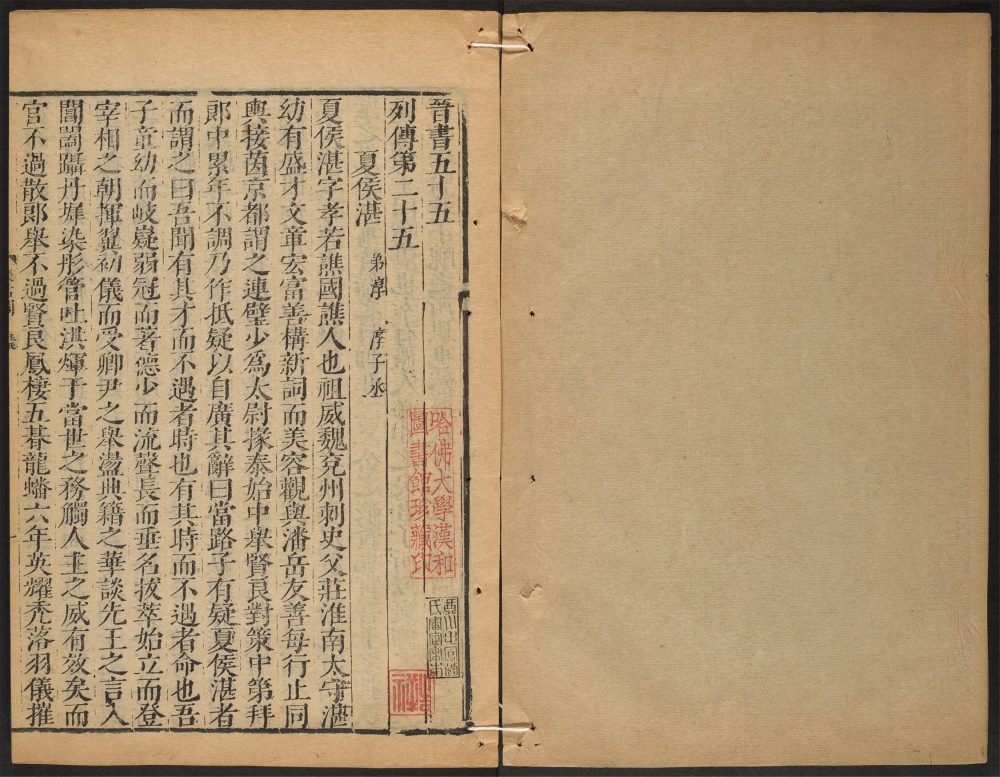 晉書五十五
列傳第二十五
夏侯湛 弟淳 淳子丞
夏侯湛字孝若譙國譙人也祖威魏兗州刺史父莊淮南太守湛
幼有盛才文章宏富善構新詞而美容觀與潘岳友善每行止同
輿接茵京都謂之連璧少爲太尉掾泰始中舉賢良對策中第拜
郎中累年不調乃作抵疑以自廣其辭曰當路子有疑夏侯湛者
而謂之曰吾聞有其才而不遇者時也有其時而不遇者命也吾
子童幼而岐嶷弱冠而著德少而流聲長而垂名拔萃始立而登
宰相之朝揮翼初儀而受卿尹之舉盪典籍之華談先王之言入
閶闔躡丹墀染彤管吐洪煇干當世之務觸人主之威有效矣而
官不過散郎舉不過賢良鳳棲五朞龍蟠六年英耀禿落羽儀摧
哈佛大學漢和
圖書館珍藏印